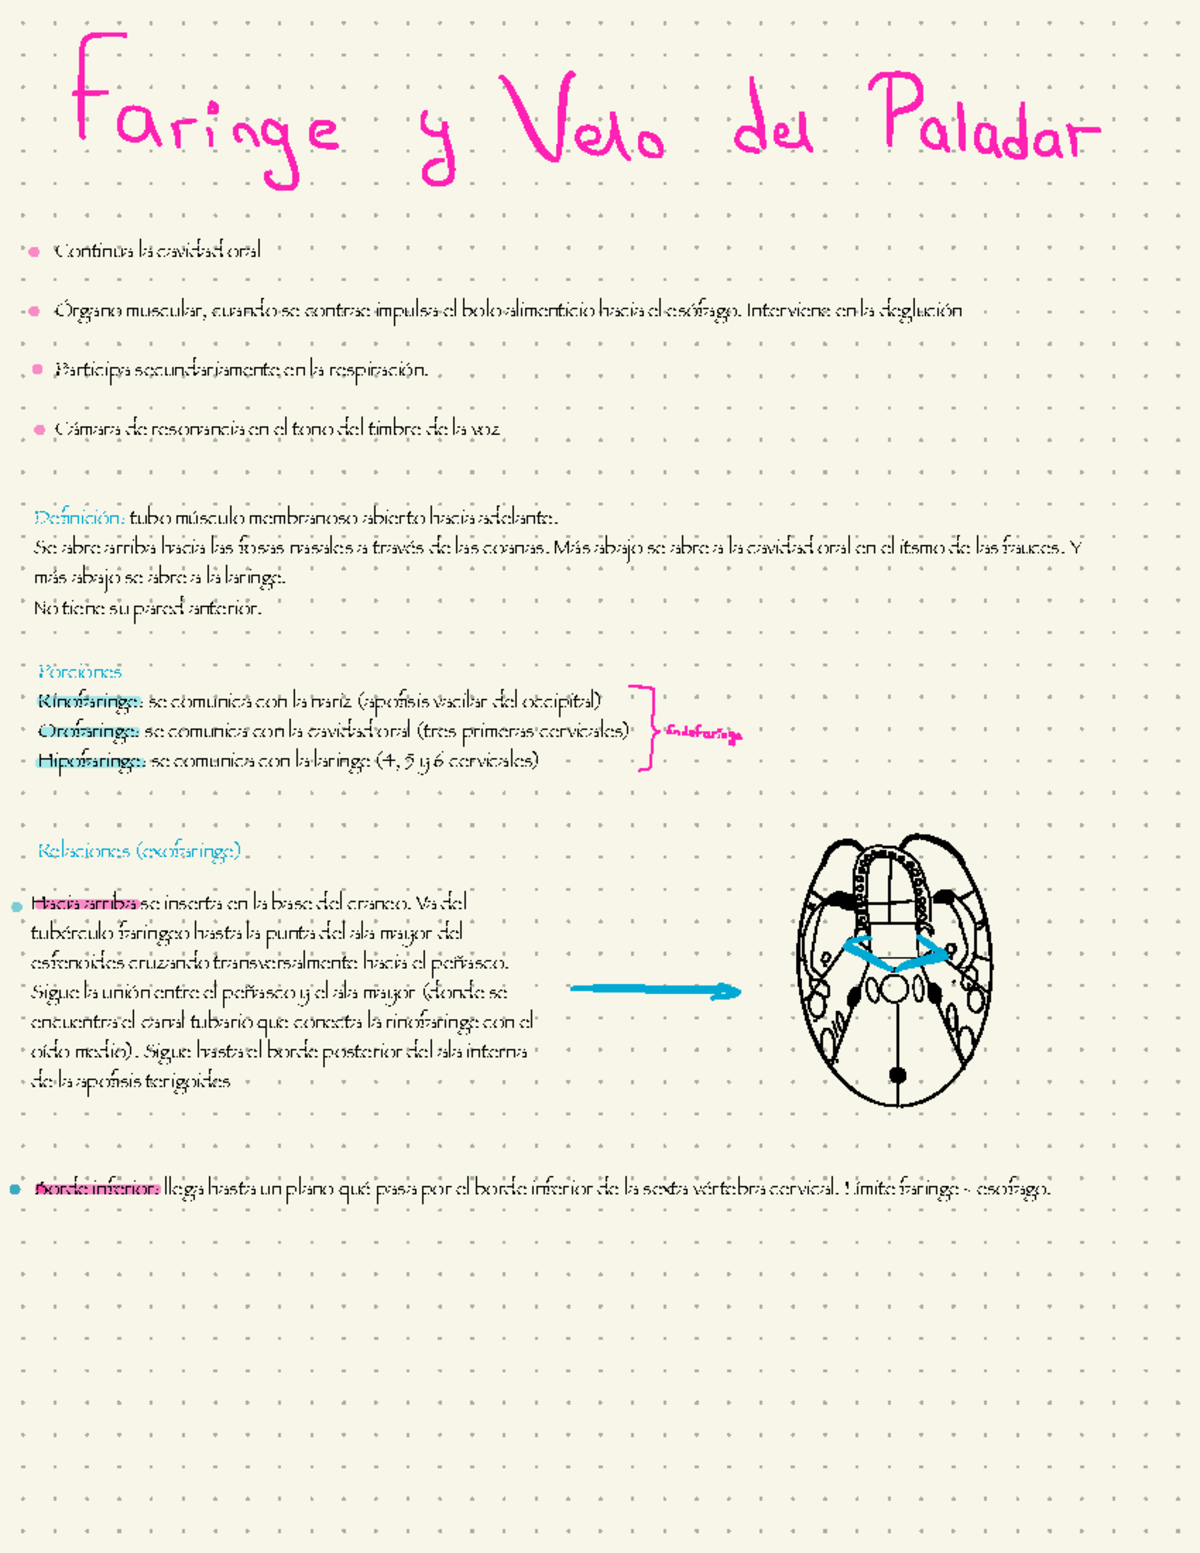 Faringe y Velo del Paladar
Continua la cavidad oral
Órgano muscular, cuando se contrae impulsa el bolo alimenticio hacia el esófago. Interviene en la deglución
Participa secundariamente en la respiración.
Cámara de resonancia en el tono del timbre de la voz
Definición: tubo músculo membranoso abierto hacia adelante.
Se abre arriba hacia las fosas nasales a través de las coanas. Más abajo se abre a la cavidad oral en el itsmo de las fauces. Y
más abajo se abre a la laringe.
No tiene su pared anterior.
Porciones
Rinofaringe: se comunica con la nariz (apofisis vacilar del occipital)
Orofaringe: se comunica con la cavidad oral (tres primeras cervicales)
Endofaringe
Hipofaringe: se comunica con la laringe (4, 5 y 6 cervicales)
Relaciones (exofaringe)
Hacia arriba se inserta en la base del craneo. Va del
tubérculo faringeo hasta la punta del ala mayor del
esfenoides cruzando transversalmente hacia el peñasco.
Sigue la unión entre el peñasco y el ala mayor (donde se
encuentra el canal tubario que conecta la rinofaringe con el
oído medio). Sigue hasta el borde posterior del ala interna
de la apofisis terigoides
Borde inferior: llega hasta un plano qué pasa por el borde inferior de la sexta vértebra cervical. Límite faringe - esofago.